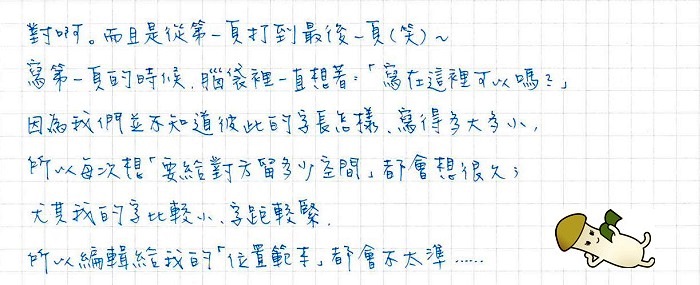 對啊。而且是從第一頁打到最後一頁(笑)~
寫第一頁的時候、腦袋裡一直想著:「寫在這裡可以嗎?」
因為我們並不知道彼此的字長怎樣、寫得多大多小,
所以每次想「要給對方留多少空間」都會想很久;
尤其我的字比較小、字距較緊、
所以編輯給我的「位置範本」都會不太準……